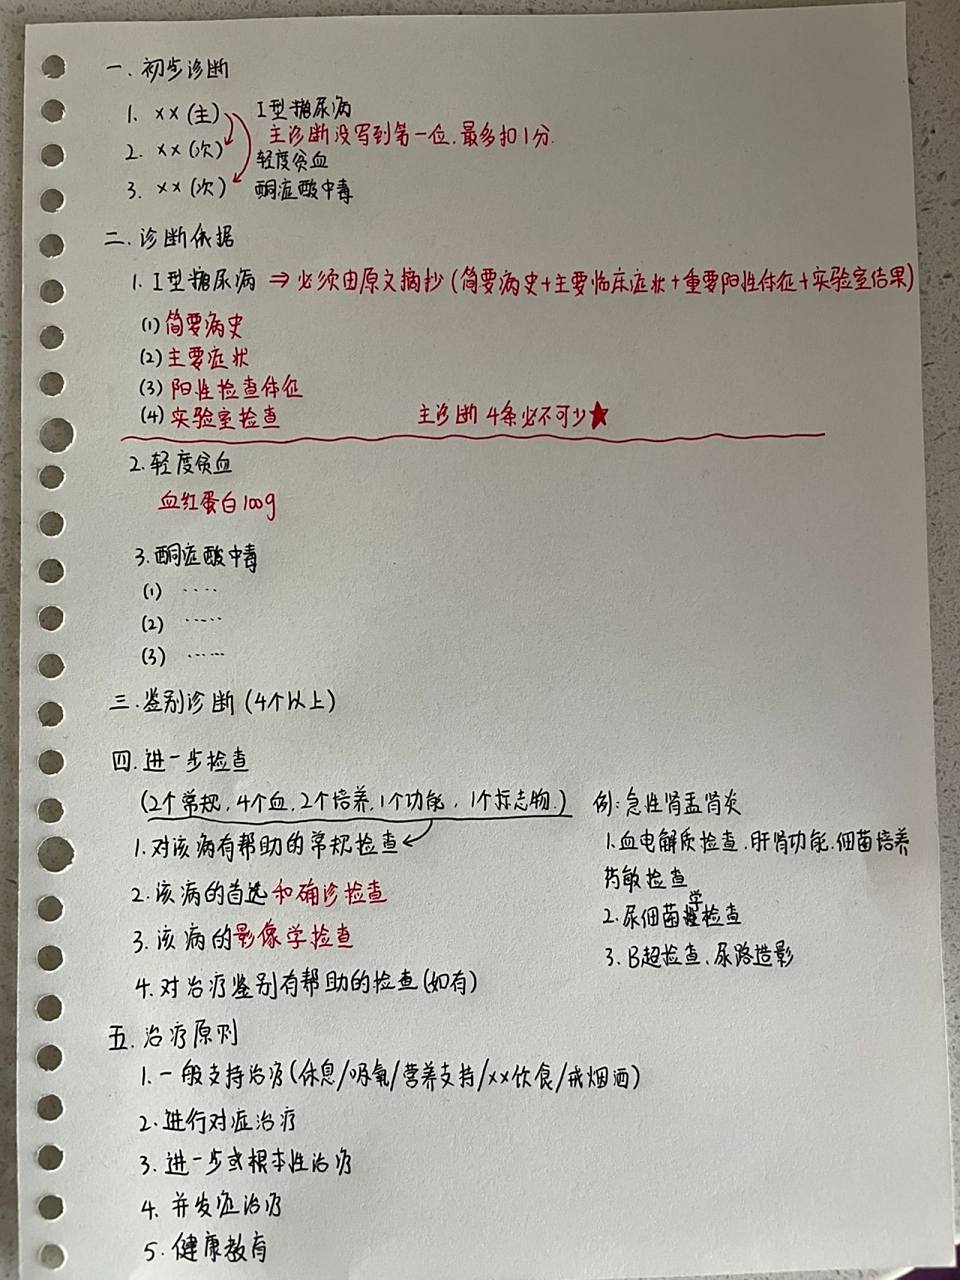 一、初步诊断
1. ××(主) I型糖尿病
主诊断没写到第一位,最多扣1分.
2. ××(次) 轻度贫血
3. ××(次) 酮症酸中毒
二、诊断依据
1. I型糖尿病 ⇒ 必须由原文摘抄(简要病史+主要临床症状+重要阳性体征+实验室结果)
(1) 简要病史
(2) 主要症状
(3) 阳性检查体征
(4) 实验室检查 主诊断 4条必不可少★
2. 轻度贫血
血红蛋白100g
3. 酮症酸中毒
(1) ····
(2) ·····
(3) ·····
三、鉴别诊断(4个以上)
四、进一步检查
(2个常规,4个血,2个培养,1个功能,1个标志物.)
1. 对该病有帮助的常规检查
2. 该病的首选和确诊检查
3. 该病的影像学检查
4. 对治疗鉴别有帮助的检查(如有)
例:急性肾盂肾炎
1. 血电解质检查、肝肾功能、细菌培养
药敏检查
2. 尿细菌学检查
3. B超检查、尿路造影
五、治疗原则
1. 一般支持治疗(休息/吸氧/营养支持/××饮食/戒烟酒)
2. 进行对症治疗
3. 进一步或根本性治疗
4. 并发症治疗
5. 健康教育